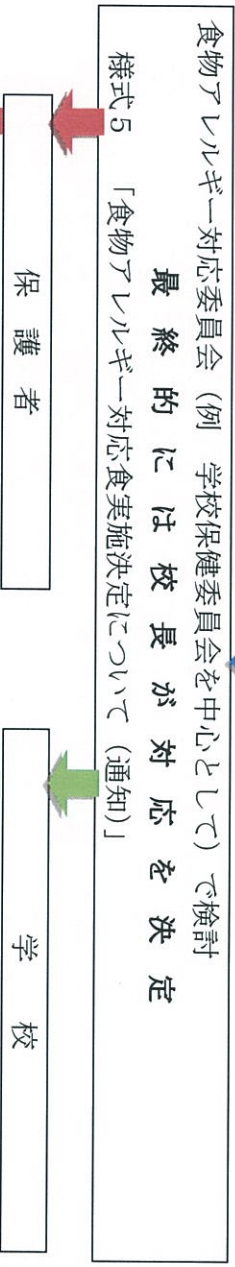 食物アレルギー対応委員会（例　学校保健委員会を中心として）で検討
最終的には校長が対応を決定
様式５　「食物アレルギー対応食実施決定について（通知）」
保護者
学校